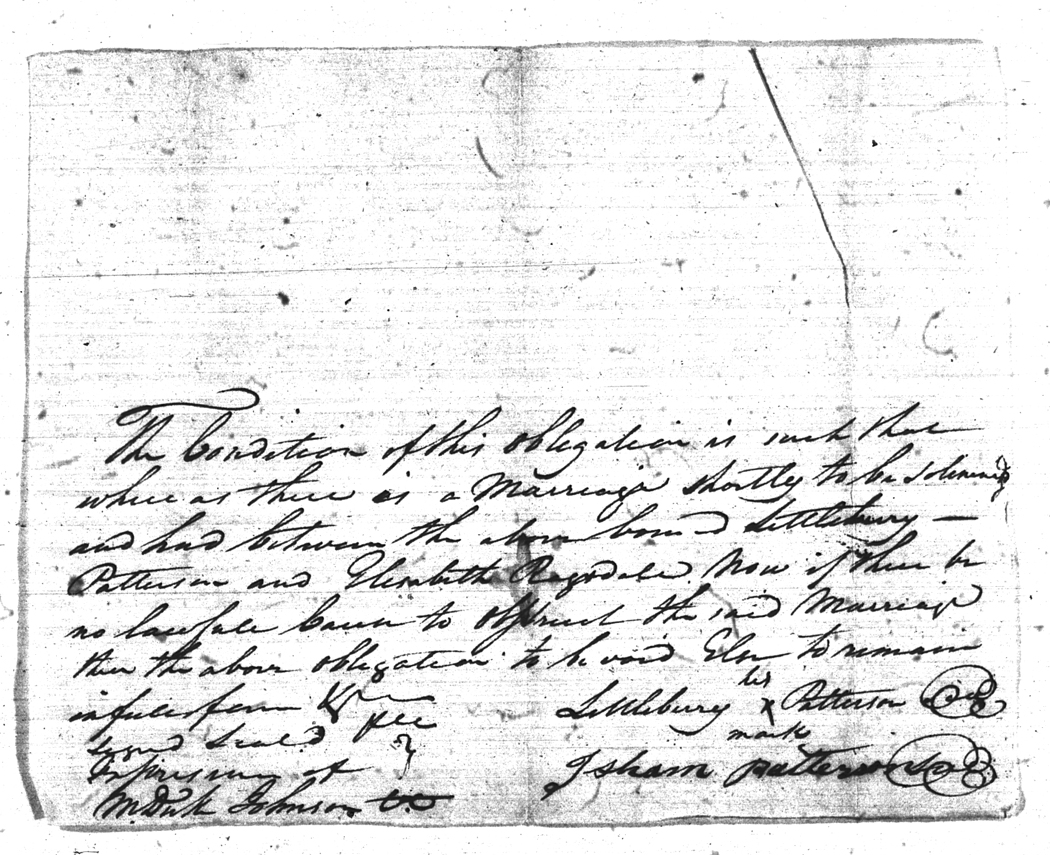 The Condition of this obligation is such that
where as there is a Marriage shortly to be solemnizd
and had between the above bound Littlebury —
Patterson and Elizabeth Ragsdale Now if there be
no lawfull Cause to obstruct the said Marriage
then the above obligation to be void Else to remain
in full force
Littlebury his x mark Patterson
signd Seald
In presence of
Isham patterson
Johnson